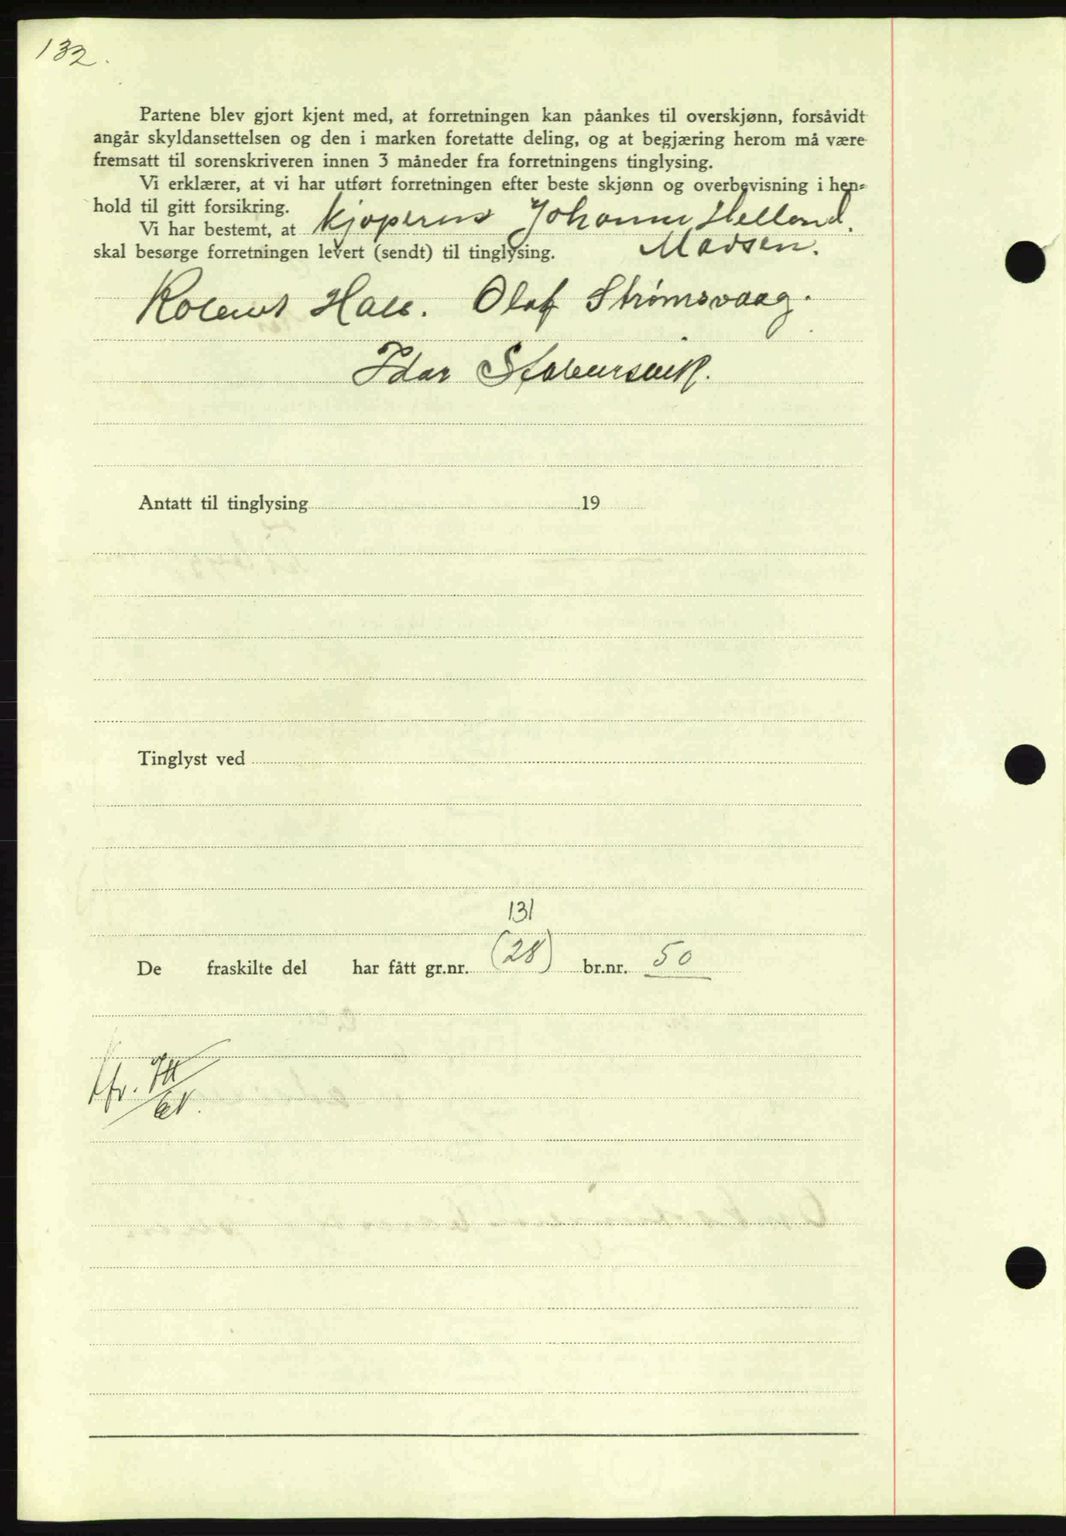 132.
Partene blev gjort kjent med, at forretningen kan påankes til overskjønn, forsåvidt
angår skyldansettelsen og den i marken foretatte deling, og at begjæring herom må være
fremsatt til sorenskriveren innen 3 måneder fra forretningens tinglysing.
Vi erklærer, at vi har utført forretningen efter beste skjønn og overbevisning i hen-
hold til gitt forsikring.
Vi har bestemt, at kjøperens Johanne Helland
Madsen.
skal besørge forretningen levert (sendt) til tinglysing.
Hals. Olaf Strømsvaag.
Idar Stabursvik.
Antatt til tinglysing 19
Tinglyst ved
131
De fraskilte del har fått gr.nr. (28) br.nr. 50